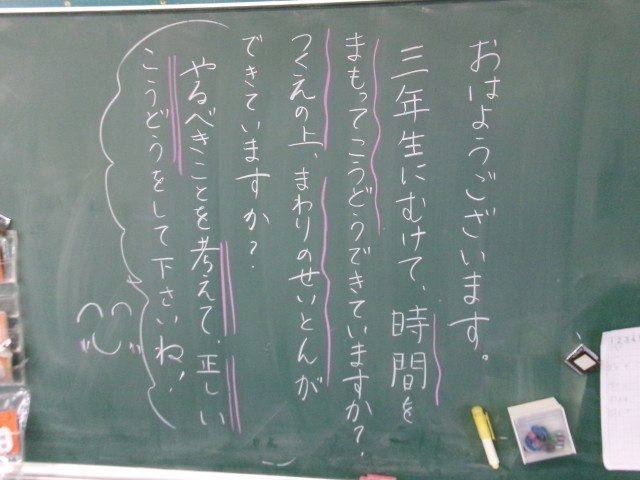 おはようございます。
三年生にむけて、時間を
まもってこうどうできていますか?
つくえの上、まわりのせいとんが
できていますか?
やるべきことを考えて、正しい
こうどうをして下さいね!